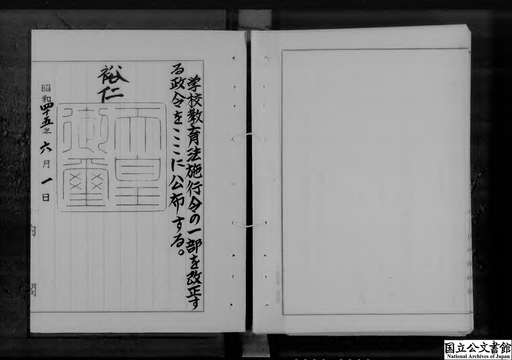 学校教育法施行令の一部を改正す
る政令をここに公布する。
裕仁
天皇
御璽
昭和四十五年六月一日
国立公文書館
National Archives of Japan